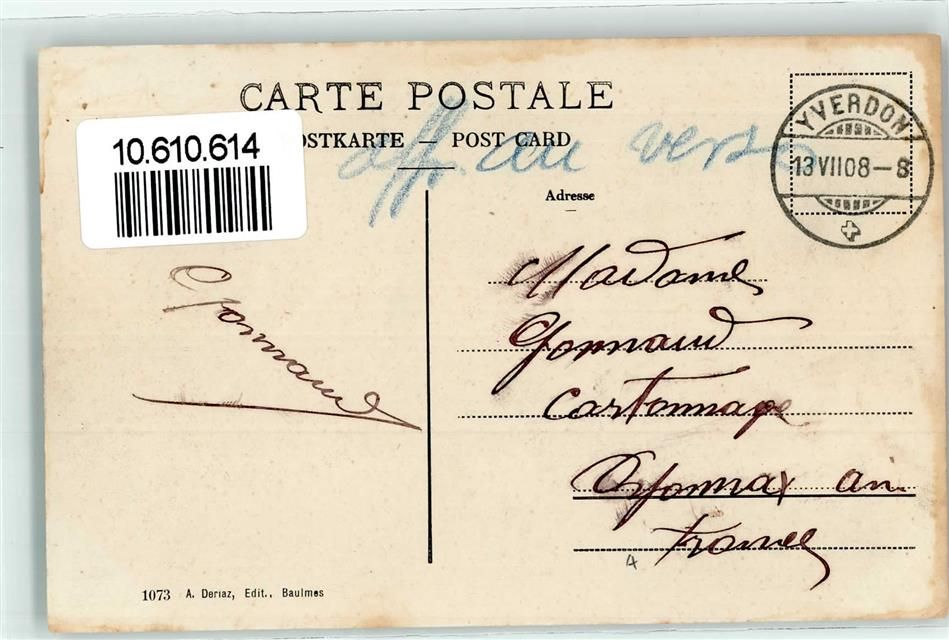 CARTE POSTALE
POSTKARTE — POST CARD
10.610.614
aff. au verso
YVERDON
13 VII 08 – 8
Adresse
Madame
Gonnaud
Cartonnage
Oyonnax Ain
France
Gonnaud
4
1073 A. Deriaz, Edit., Baulmes